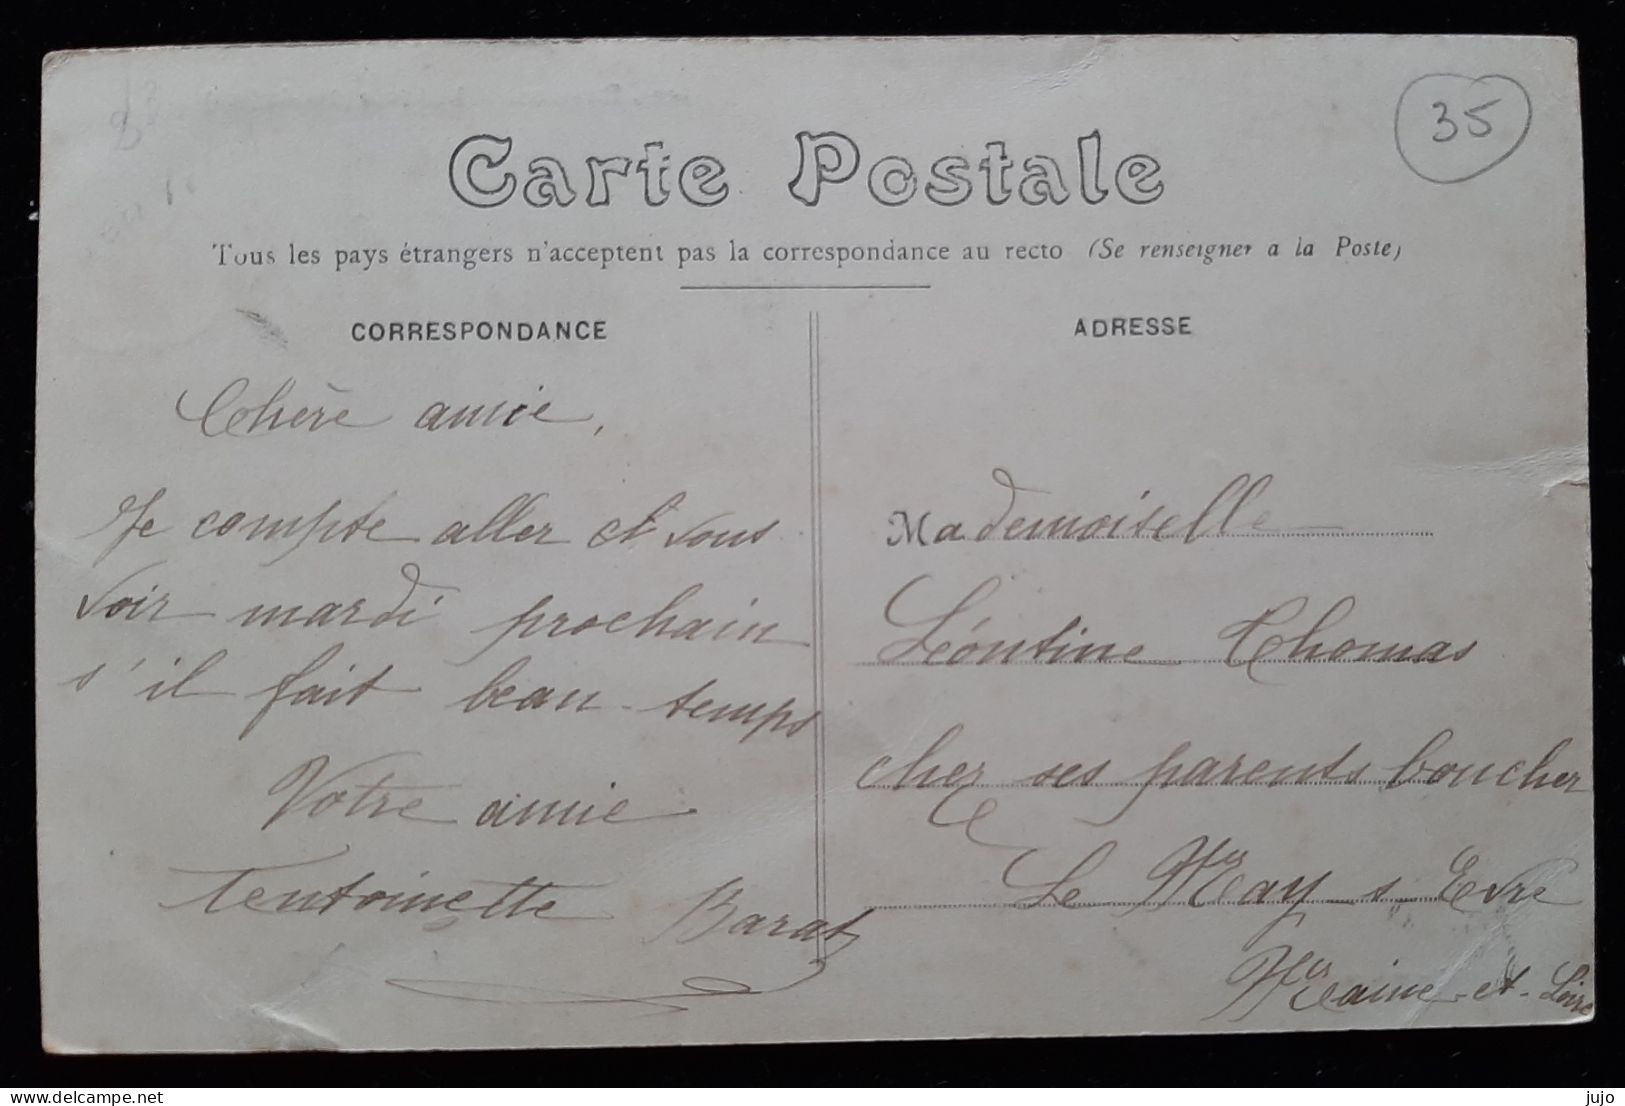 35
Carte Postale
Tous les pays étrangers n'acceptent pas la correspondance au recto (Se renseigner a la Poste)
CORRESPONDANCE
Chère amie,
Je compte aller et vous
voir mardi prochain
s'il fait beau temps
Votre amie
Tentoinette Barat
ADRESSE
Mademoiselle
Léontine Thomas
chez ses parents boucher
Le May s Evre
Maine-et-Loire
delcampe.net
jujo